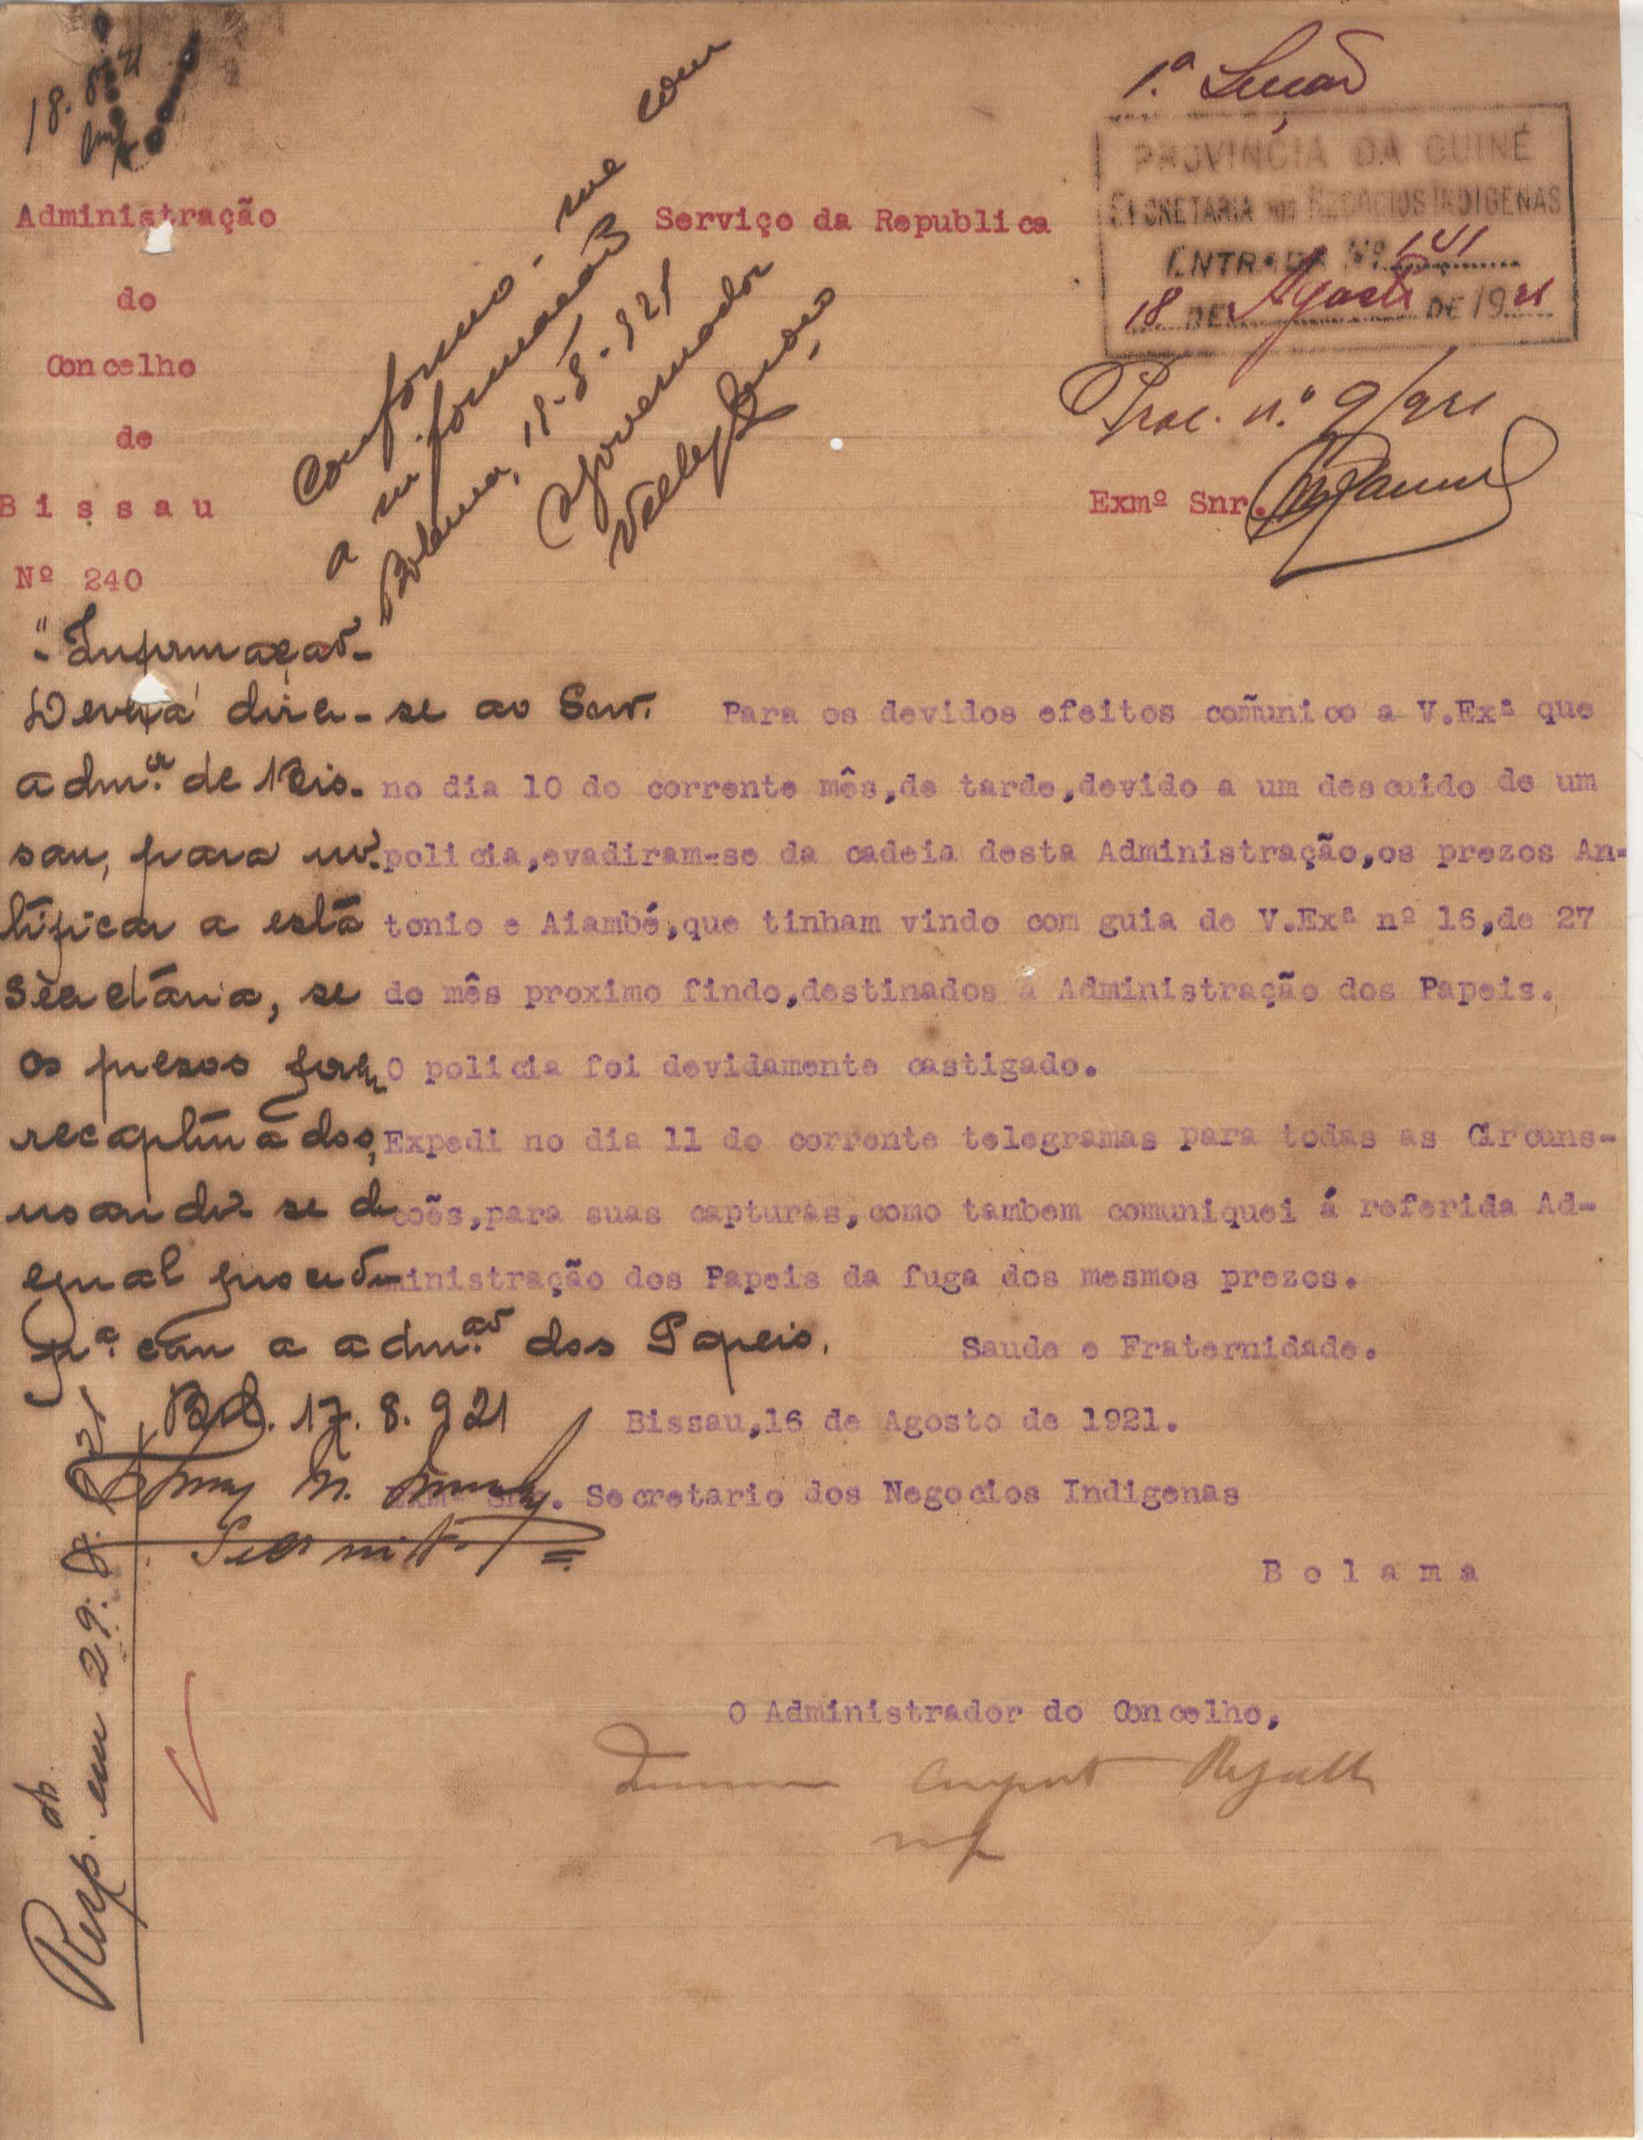 18. 8. 21
1.ª Secção
PROVINCIA DA GUINÉ
SECRETARIA DOS NEGOCIOS INDIGENAS
ENTRADA Nº 141
18 DE Agosto DE 1921
Proc. n.º 9/921
Administração
do
Concelho
de
Bissau
Nº 240
Serviço da Republica
Exmº Snr.
Conformo-me com
a informação
Bolama, 18-8-921
O Governador
"Informação-
Deverá dizer-se ao Snr.
admor. de Bis-
sau, para no-
tificar a esta
Secretária, se
os presos forem
recapturados,
usando-se de
egual procedim-
to. com a admão. dos Papeis.
Bol. 17. 8. 921
Para os devidos efeitos comunico a V.Exª que
no dia 10 do corrente mês,de tarde,devido a um descuido de um
policia,evadiram-se da cadeia desta Administração,os prezos An-
tonio e Aiambé,que tinham vindo com guia de V.Exª nº 16,de 27
do mês proximo findo,destinados á Administração dos Papeis.
O policia foi devidamente castigado.
Expedi no dia 11 do corrente telegramas para todas as Circuns-
coẽs,para suas capturas,como tambem comuniquei á referida Ad-
ministração dos Papeis da fuga dos mesmos prezos.
Saude e Fraternidade.
Bissau,16 de Agosto de 1921.
Exmº Snr. Secretario dos Negocios Indigenas
Bolama
O Administrador do Concelho,
Resp. em 29. 8. 21